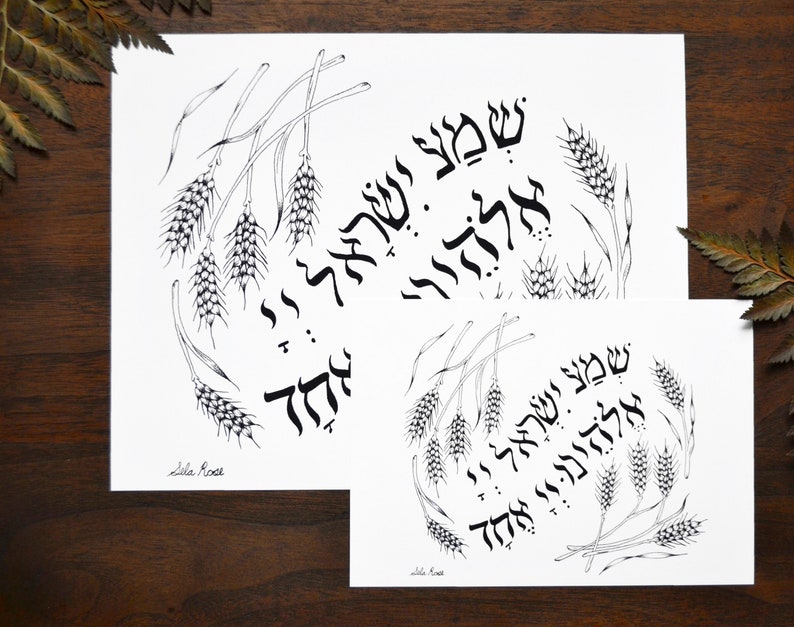 שְׁמַע יִשְׂרָאֵל יְיָ
אֱלֹהֵינוּ
אֶחָד
Sela Rose
שְׁמַע יִשְׂרָאֵל יְיָ
אֱלֹהֵינוּ יְיָ אֶחָד
Sela Rose